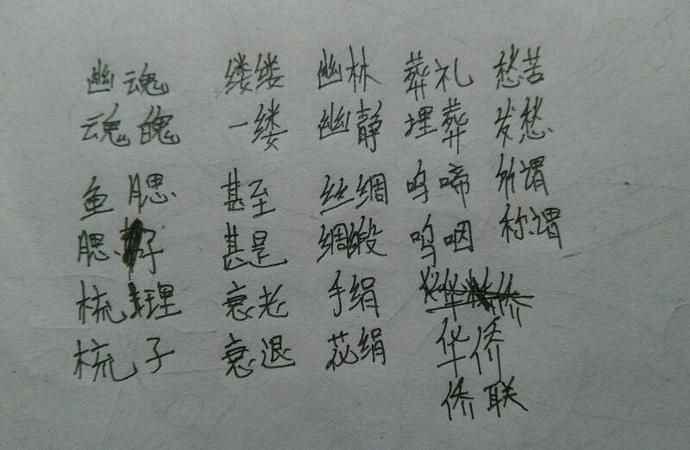 幽魂 缕缕 幽林 葬礼 愁苦
魂魄 一缕 幽静 埋葬 发愁
鱼腮 甚至 丝绸 鸣啼 所谓
腮子 甚是 绸缎 呜咽 称谓
梳理 衰老 手绢 华侨
梳子 衰退 花绢 华侨
侨联